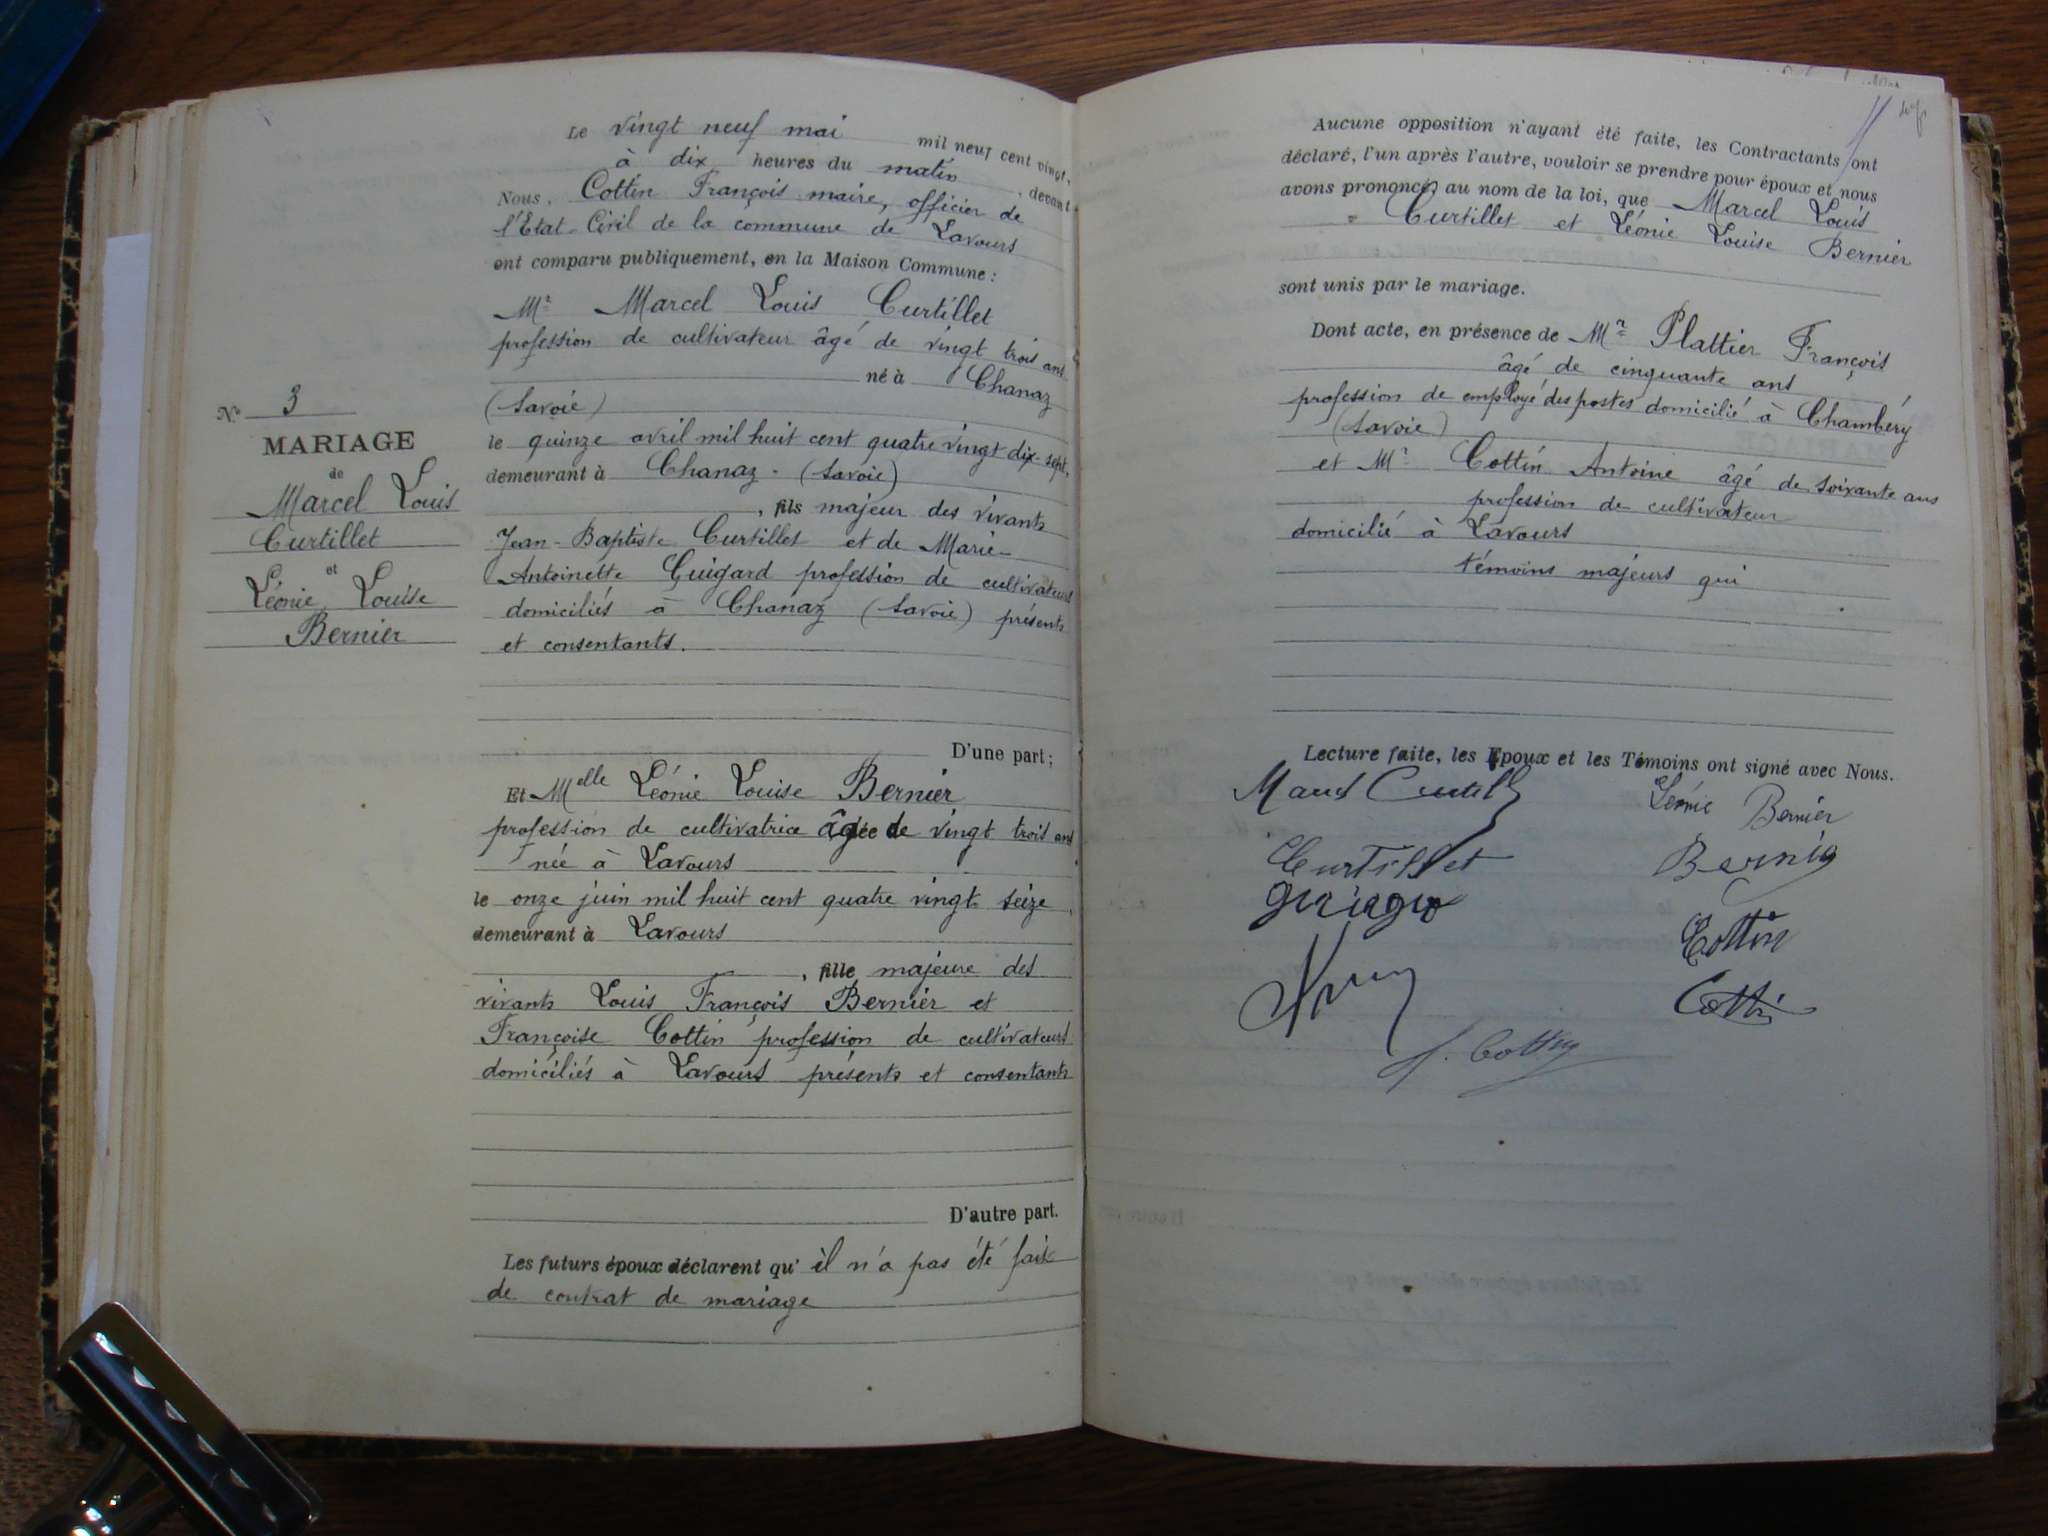 Le vingt neuf mai mil neuf cent vingt,
à dix heures du matin, devant
Nous, Cottin François maire, officier de
l'Etat-Civil de la commune de Lavours
ont comparu publiquement, en la Maison Commune:
Mr Marcel Louis Curtillet
profession de cultivateur âgé de vingt trois ans
né à Chanaz
(Savoie)
le quinze avril mil huit cent quatre vingt dix-sept,
demeurant à Chanaz - (Savoie)
, fils majeur des vivants
Jean-Baptiste Curtillet et de Marie-
Antoinette Guigard profession de cultivateurs
domiciliés à Chanaz (Savoie) présents
et consentants.
D'une part;
Et Melle Léonie Louise Bernier
profession de cultivatrice âgée de vingt trois ans
née à Lavours
le onze juin mil huit cent quatre vingt seize,
demeurant à Lavours
, fille majeure des
vivants Louis François Bernier et
Françoise Cottin profession de cultivateurs
domiciliés à Lavours présents et consentants
D'autre part.
Les futurs époux déclarent qu'il n'a pas été fait
de contrat de mariage
N° 3
MARIAGE
de
Marcel Louis
Curtillet
et
Léonie Louise
Bernier
Aucune opposition n'ayant été faite, les Contractants ont
déclaré, l'un après l'autre, vouloir se prendre pour époux et nous
avons prononcé, au nom de la loi, que Marcel Louis
Curtillet et Léonie Louise Bernier
sont unis par le mariage.
Dont acte, en présence de Mr Plattier François
âgé de cinquante ans
profession de employé des postes domicilié à Chambéry
(Savoie)
et Mr Cottin Antoine âgé de soixante ans
profession de cultivateur
domicilié à Lavours
témoins majeurs qui
Lecture faite, les Epoux et les Témoins ont signé avec Nous.
Léonie Bernier
Curtillet
Cottin
Cottin
f. Cottin